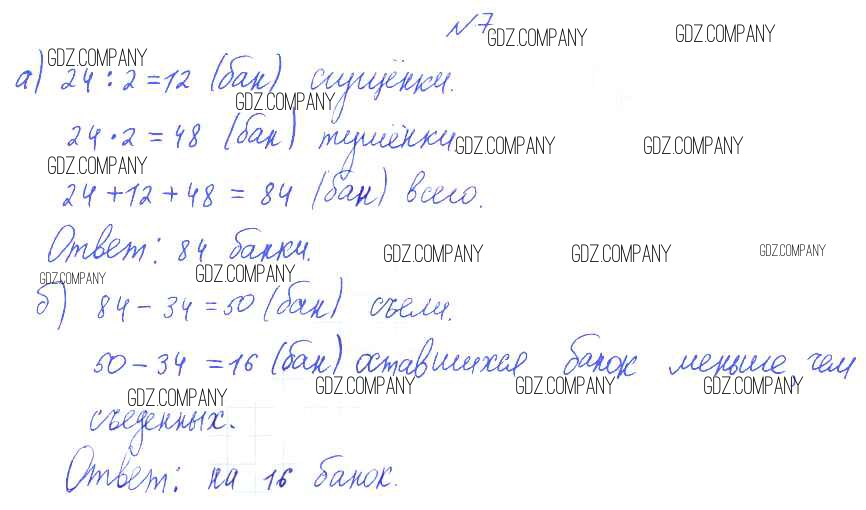 №7
GDZ.COMPANY GDZ.COMPANY
GDZ.COMPANY
а) 24 : 2 = 12 (бан) сгущёнки.
GDZ.COMPANY
24 · 2 = 48 (бан) тушёнки.
GDZ.COMPANY GDZ.COMPANY
GDZ.COMPANY
24 + 12 + 48 = 84 (бан) всего.
Ответ: 84 банки.
GDZ.COMPANY GDZ.COMPANY GDZ.COMPANY
GDZ.COMPANY GDZ.COMPANY
б) 84 – 34 = 50 (бан) съели.
50 – 34 = 16 (бан) оставшихся банок меньше, чем
GDZ.COMPANY GDZ.COMPANY GDZ.COMPANY GDZ.COMPANY
съеденных.
Ответ: на 16 банок.